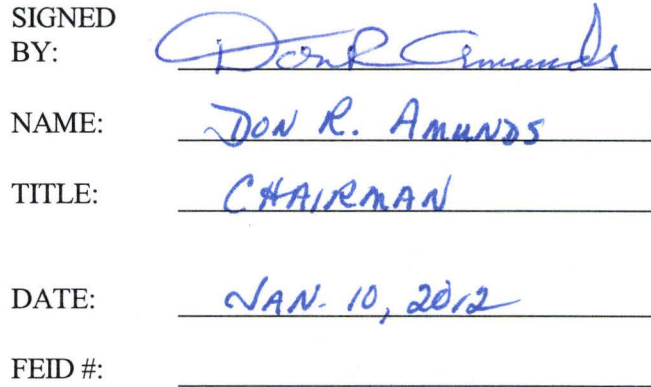 SIGNED
BY: Don R Amunds
NAME: DON R. AMUNDS
TITLE: CHAIRMAN
DATE: JAN. 10, 2012
FEID #: